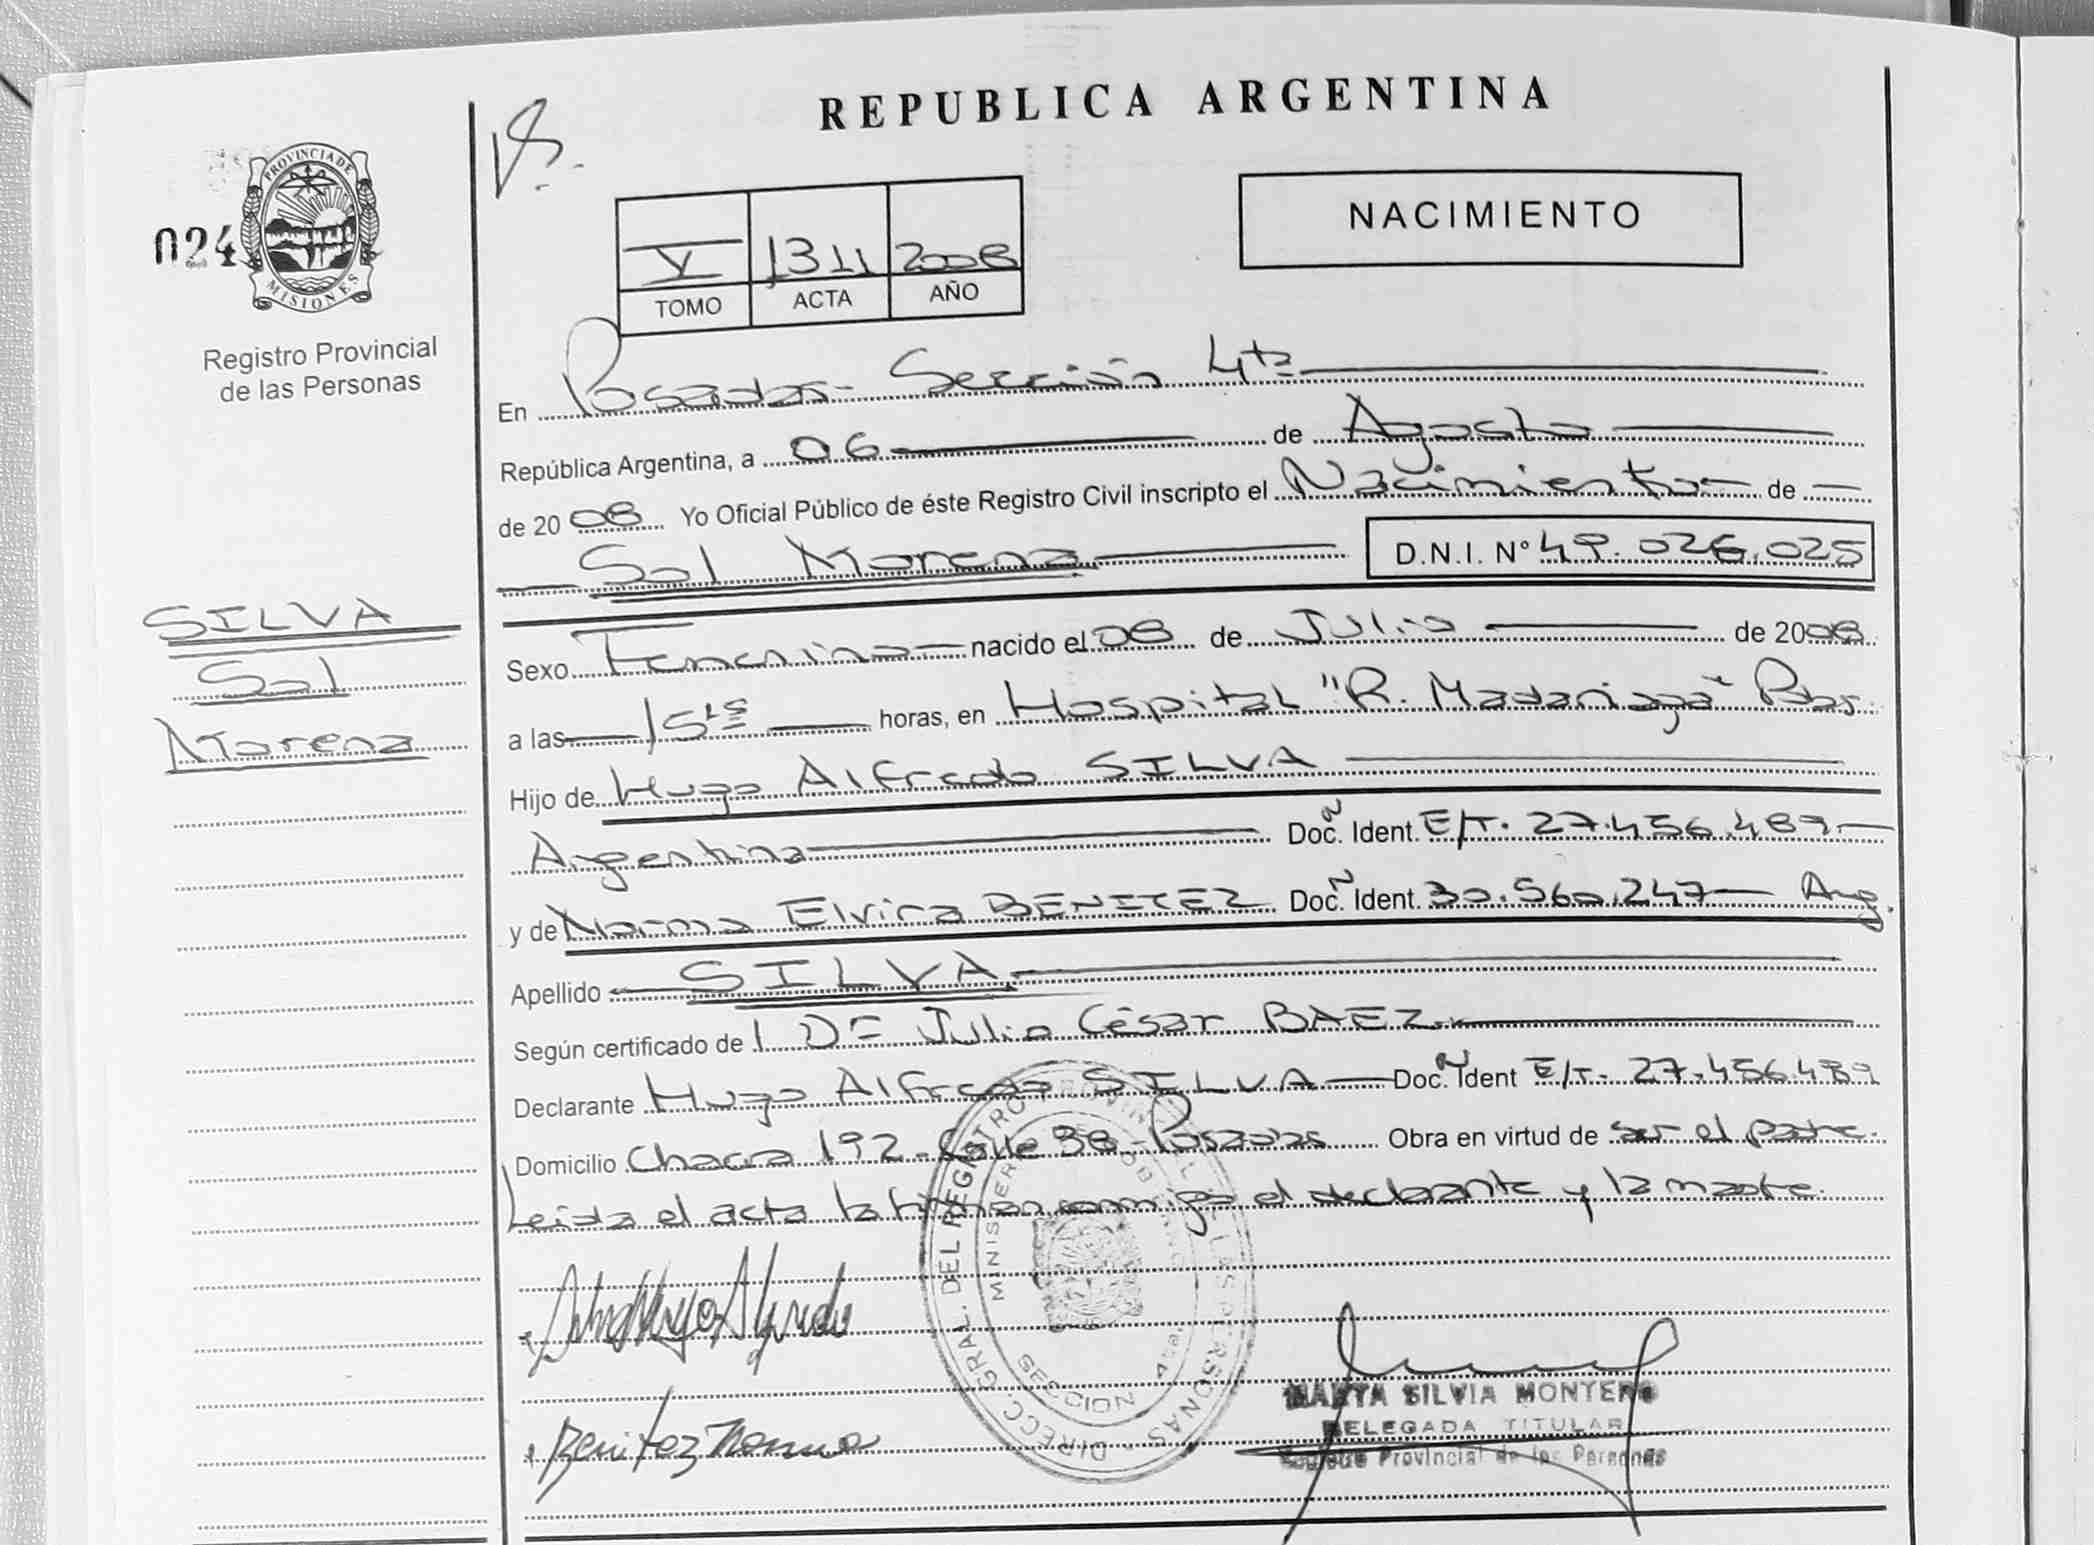 REPUBLICA ARGENTINA
PROVINCIA DE
MISIONES
024
Registro Provincial
de las Personas
NACIMIENTO
V 1311 2008
TOMO ACTA AÑO
En Posadas - Sección 4ta
República Argentina, a 06 de Agosto
de 2008 Yo Oficial Público de éste Registro Civil inscripto el Nacimiento de
Sol Morena D.N.I. Nº 49.026.025
SILVA
Sol
Morena
Sexo Femenino nacido el 08 de Julio de 2008
a las 15:15 horas, en Hospital "R. Madariaga" Pdas.
Hijo de Hugo Alfredo SILVA
Argentina Doc. Ident. E/T. 27.456.489
y de Norma Elvira BENITEZ Doc. Ident. 30.560.247 Arg.
Apellido SILVA
Según certificado de Julio César BAEZ
Declarante Hugo Alfredo SILVA Doc. Ident E/T. 27.456.489
Domicilio Chacra 192 - Calle 38 - Posadas Obra en virtud de ser el padre.
Leida el acta la firman conmigo el declarante y la madre.
DIRECC. GRAL. DEL REGISTRO PROVINCIAL DE LAS PERSONAS
SECCION
Silva Hugo Alfredo
Benitez Norma
MARTA SILVIA MONTERO
DELEGADA TITULAR
Registro Provincial de las Personas